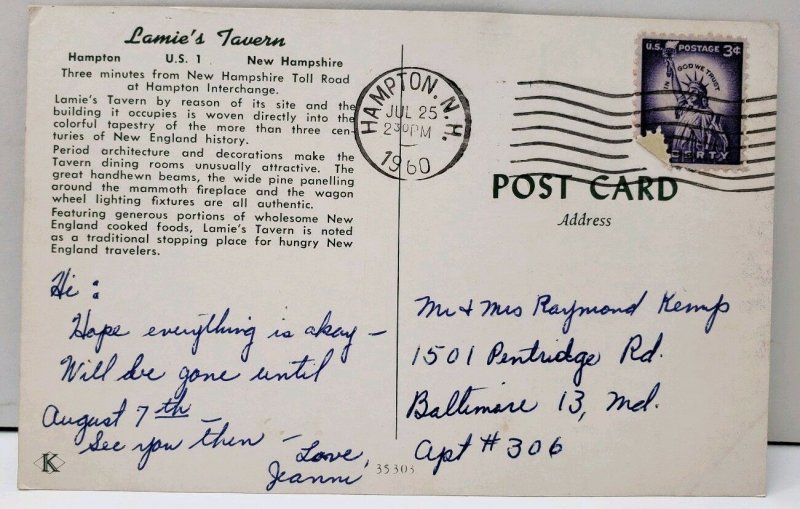 Lamie's Tavern
Hampton U.S. 1 New Hampshire
Three minutes from New Hampshire Toll Road
at Hampton Interchange.
Lamie's Tavern by reason of its site and the
building it occupies is woven directly into the
colorful tapestry of the more than three cen-
turies of New England history.
Period architecture and decorations make the
Tavern dining rooms unusually attractive. The
great handhewn beams, the wide pine panelling
around the mammoth fireplace and the wagon
wheel lighting fixtures are all authentic.
Featuring generous portions of wholesome New
England cooked foods, Lamie's Tavern is noted
as a traditional stopping place for hungry New
England travelers.
Hi :
Hope everything is okay –
Will be gone until
August 7th –
See you then –
Love,
Jeanni
K
35303
HAMPTON, N.H.
JUL 25
2 30 PM
1960
U.S. POSTAGE 3¢
IN GOD WE TRUST
ERTY
POST CARD
Address
Mr & Mrs Raymond Kemp
1501 Pentridge Rd.
Baltimore 13, Md.
Apt # 306